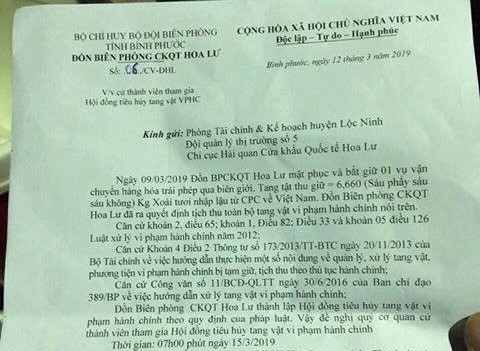 BỘ CHỈ HUY BỘ ĐỘI BIÊN PHÒNG
TỈNH BÌNH PHƯỚC
ĐỒN BIÊN PHÒNG CKQT HOA LƯ
Số: 06./CV-ĐHL
V/v cử thành viên tham gia
Hội đồng tiêu hủy tang vật VPHC
CỘNG HÒA XÃ HỘI CHỦ NGHĨA VIỆT NAM
Độc lập – Tự do – Hạnh phúc
Bình phước, ngày 12 tháng 3 năm 2019
Kính gửi: Phòng Tài chính & Kế hoạch huyện Lộc Ninh
Đội quản lý thị trường số 5
Chi cục Hải quan Cửa khẩu Quốc tế Hoa Lư
Ngày 09/03/2019 Đồn BPCKQT Hoa Lư mật phục và bắt giữ 01 vụ vận
chuyển hàng hóa trái phép qua biên giới. Tang tật thu giữ = 6,660 (Sáu phẩy sáu
sáu không) Kg Xoài tươi nhập lậu từ CPC về Việt Nam. Đồn Biên phòng CKQT
Hoa Lư đã ra quyết định tịch thu toàn bộ tang vật vi phạm hành chính nói trên.
Căn cứ khoản 2, điều 65; khoản 1, Điều 82; Điều 33 và khoản 05 điều 126
Luật xử lý vi phạm hành chính năm 2012;
Căn cứ Khoản 4 Điều 2 Thông tư số 173/2013/TT-BTC ngày 20/11/2013 của
Bộ Tài chính về việc hướng dẫn thực hiện một số nội dung về quản lý, xử lý tang vật,
phương tiện vi phạm hành chính bị tạm giữ, tịch thu theo thủ tục hành chính;
Căn cứ Công văn số 11/BCĐ-QLTT ngày 30/6/2016 của Ban chỉ đạo
389/BP về việc hướng dẫn xử lý tang vật vi phạm hành chính;
Đồn Biên phòng CKQT Hoa Lư thành lập Hội đồng tiêu hủy tang vật vi
phạm hành chính theo quy định của pháp luật. Vậy đề nghị quý cơ quan cử
thành viên tham gia Hội đồng tiêu hủy tang vật vi phạm hành chính
Thời gian: 07h00 phút ngày 15/3/2019